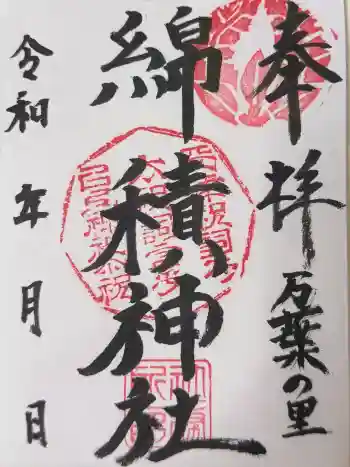 奉拝 万葉の里
綿積神社
令和 年 月 日